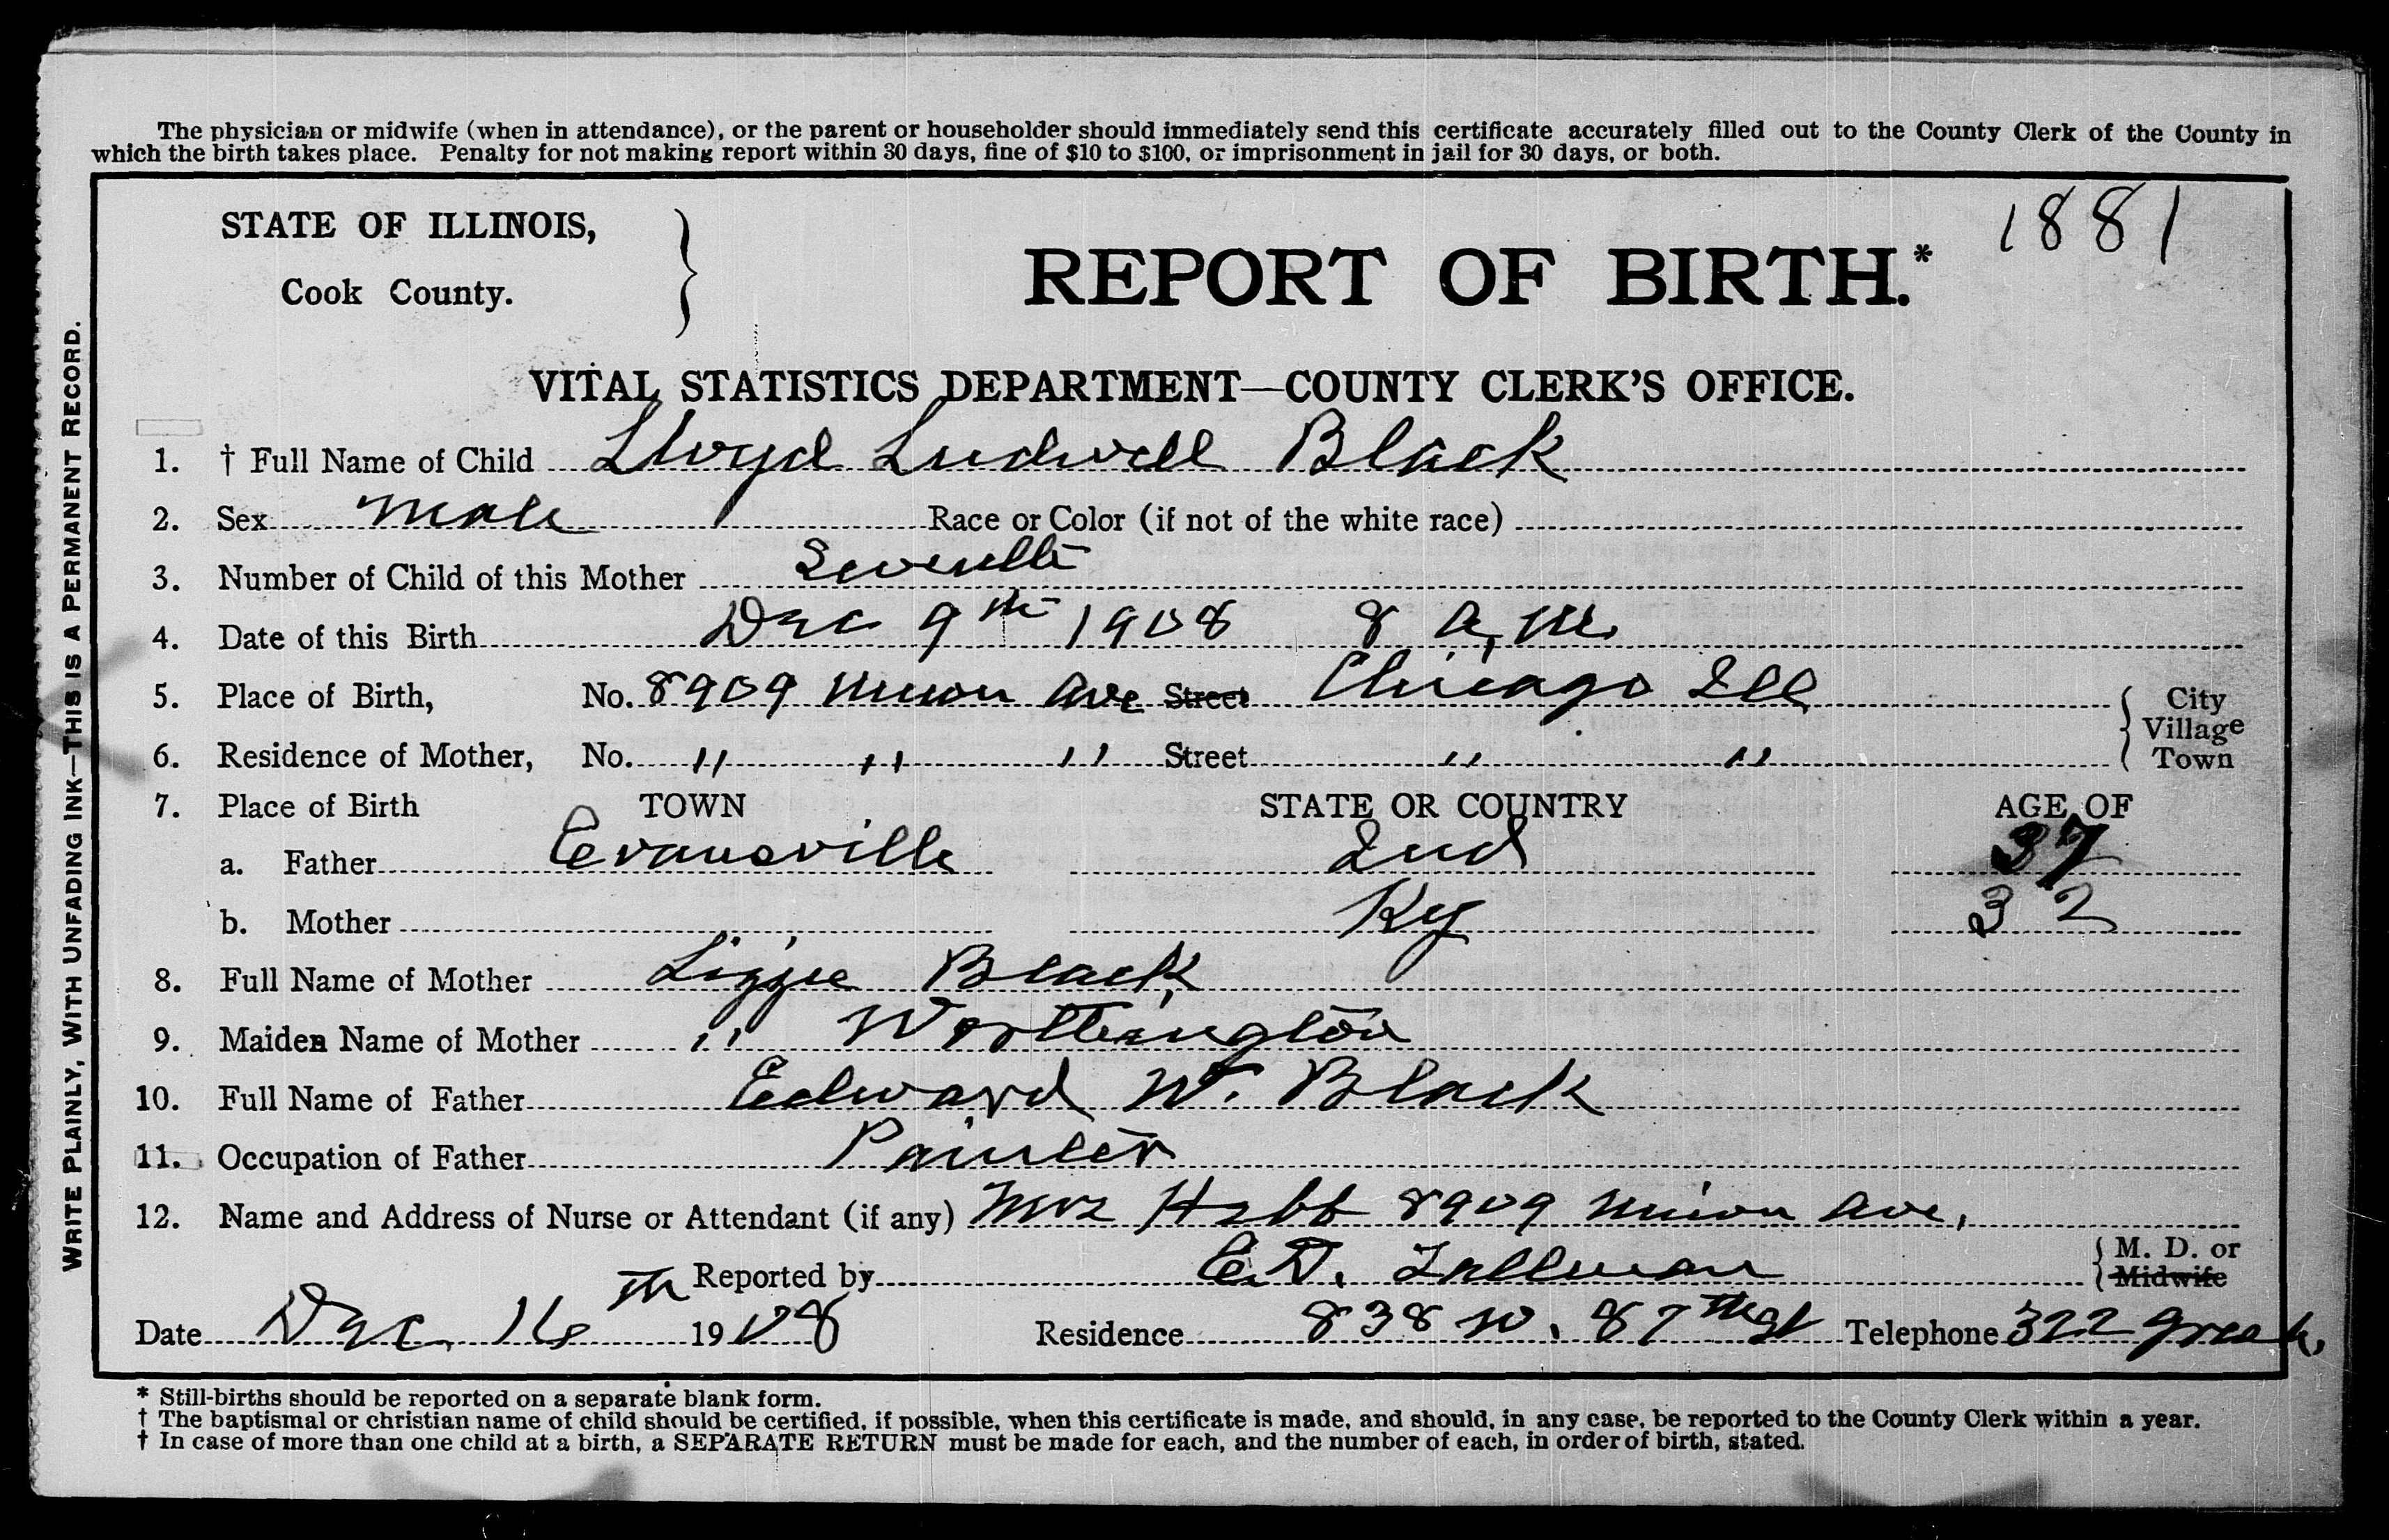 The physician or midwife (when in attendance), or the parent or householder should immediately send this certificate accurately filled out to the County Clerk of the County in
which the birth takes place. Penalty for not making report within 30 days, fine of $10 to $100, or imprisonment in jail for 30 days, or both.
WRITE PLAINLY, WITH UNFADING INK—THIS IS A PERMANENT RECORD.
STATE OF ILLINOIS,
Cook County.
REPORT OF BIRTH.* 1881
VITAL STATISTICS DEPARTMENT—COUNTY CLERK'S OFFICE.
1. † Full Name of Child Lloyd Ludwell Black
2. Sex Male Race or Color (if not of the white race)
3. Number of Child of this Mother Seventh
4. Date of this Birth Dec 9th 1908 8 A.M.
5. Place of Birth, No. 8909 Union Ave Street Chicago Ill City Village Town
6. Residence of Mother, No. " " " Street " "
7. Place of Birth TOWN STATE OR COUNTRY AGE OF
a. Father Evansville Ind 37
b. Mother Ky 32
8. Full Name of Mother Lizzie Black
9. Maiden Name of Mother " Worthington
10. Full Name of Father Edward W. Black
11. Occupation of Father Painter
12. Name and Address of Nurse or Attendant (if any) Mrs 8909 Union Ave,
Reported by E.D. Tallman M. D. or Midwife
Date Dec 16th 1908 Residence 838 W. 87th St Telephone 322
* Still-births should be reported on a separate blank form.
† The baptismal or christian name of child should be certified, if possible, when this certificate is made, and should, in any case, be reported to the County Clerk within a year.
† In case of more than one child at a birth, a SEPARATE RETURN must be made for each, and the number of each, in order of birth, stated.